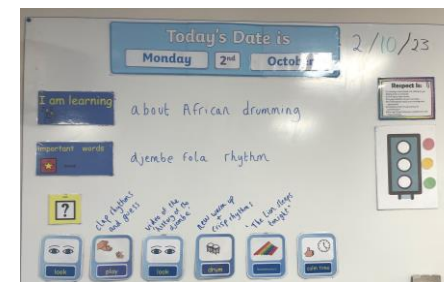 Today's Date is
Monday 2nd October
2/10/23
I am learning
about African drumming
Respect is:
important words
djembe fola rhythm
?
clap rhythms
and guess
video of the
history of the
djembe
new warm up
crisp rhythms
"The Lion sleeps
tonight"
look
play
look
drum
calm time